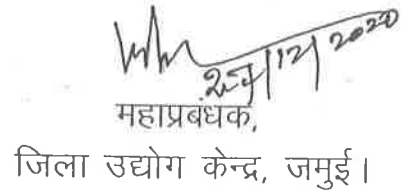 12/2020
महाप्रबंधक,
जिला उद्योग केन्द्र, जमुई।